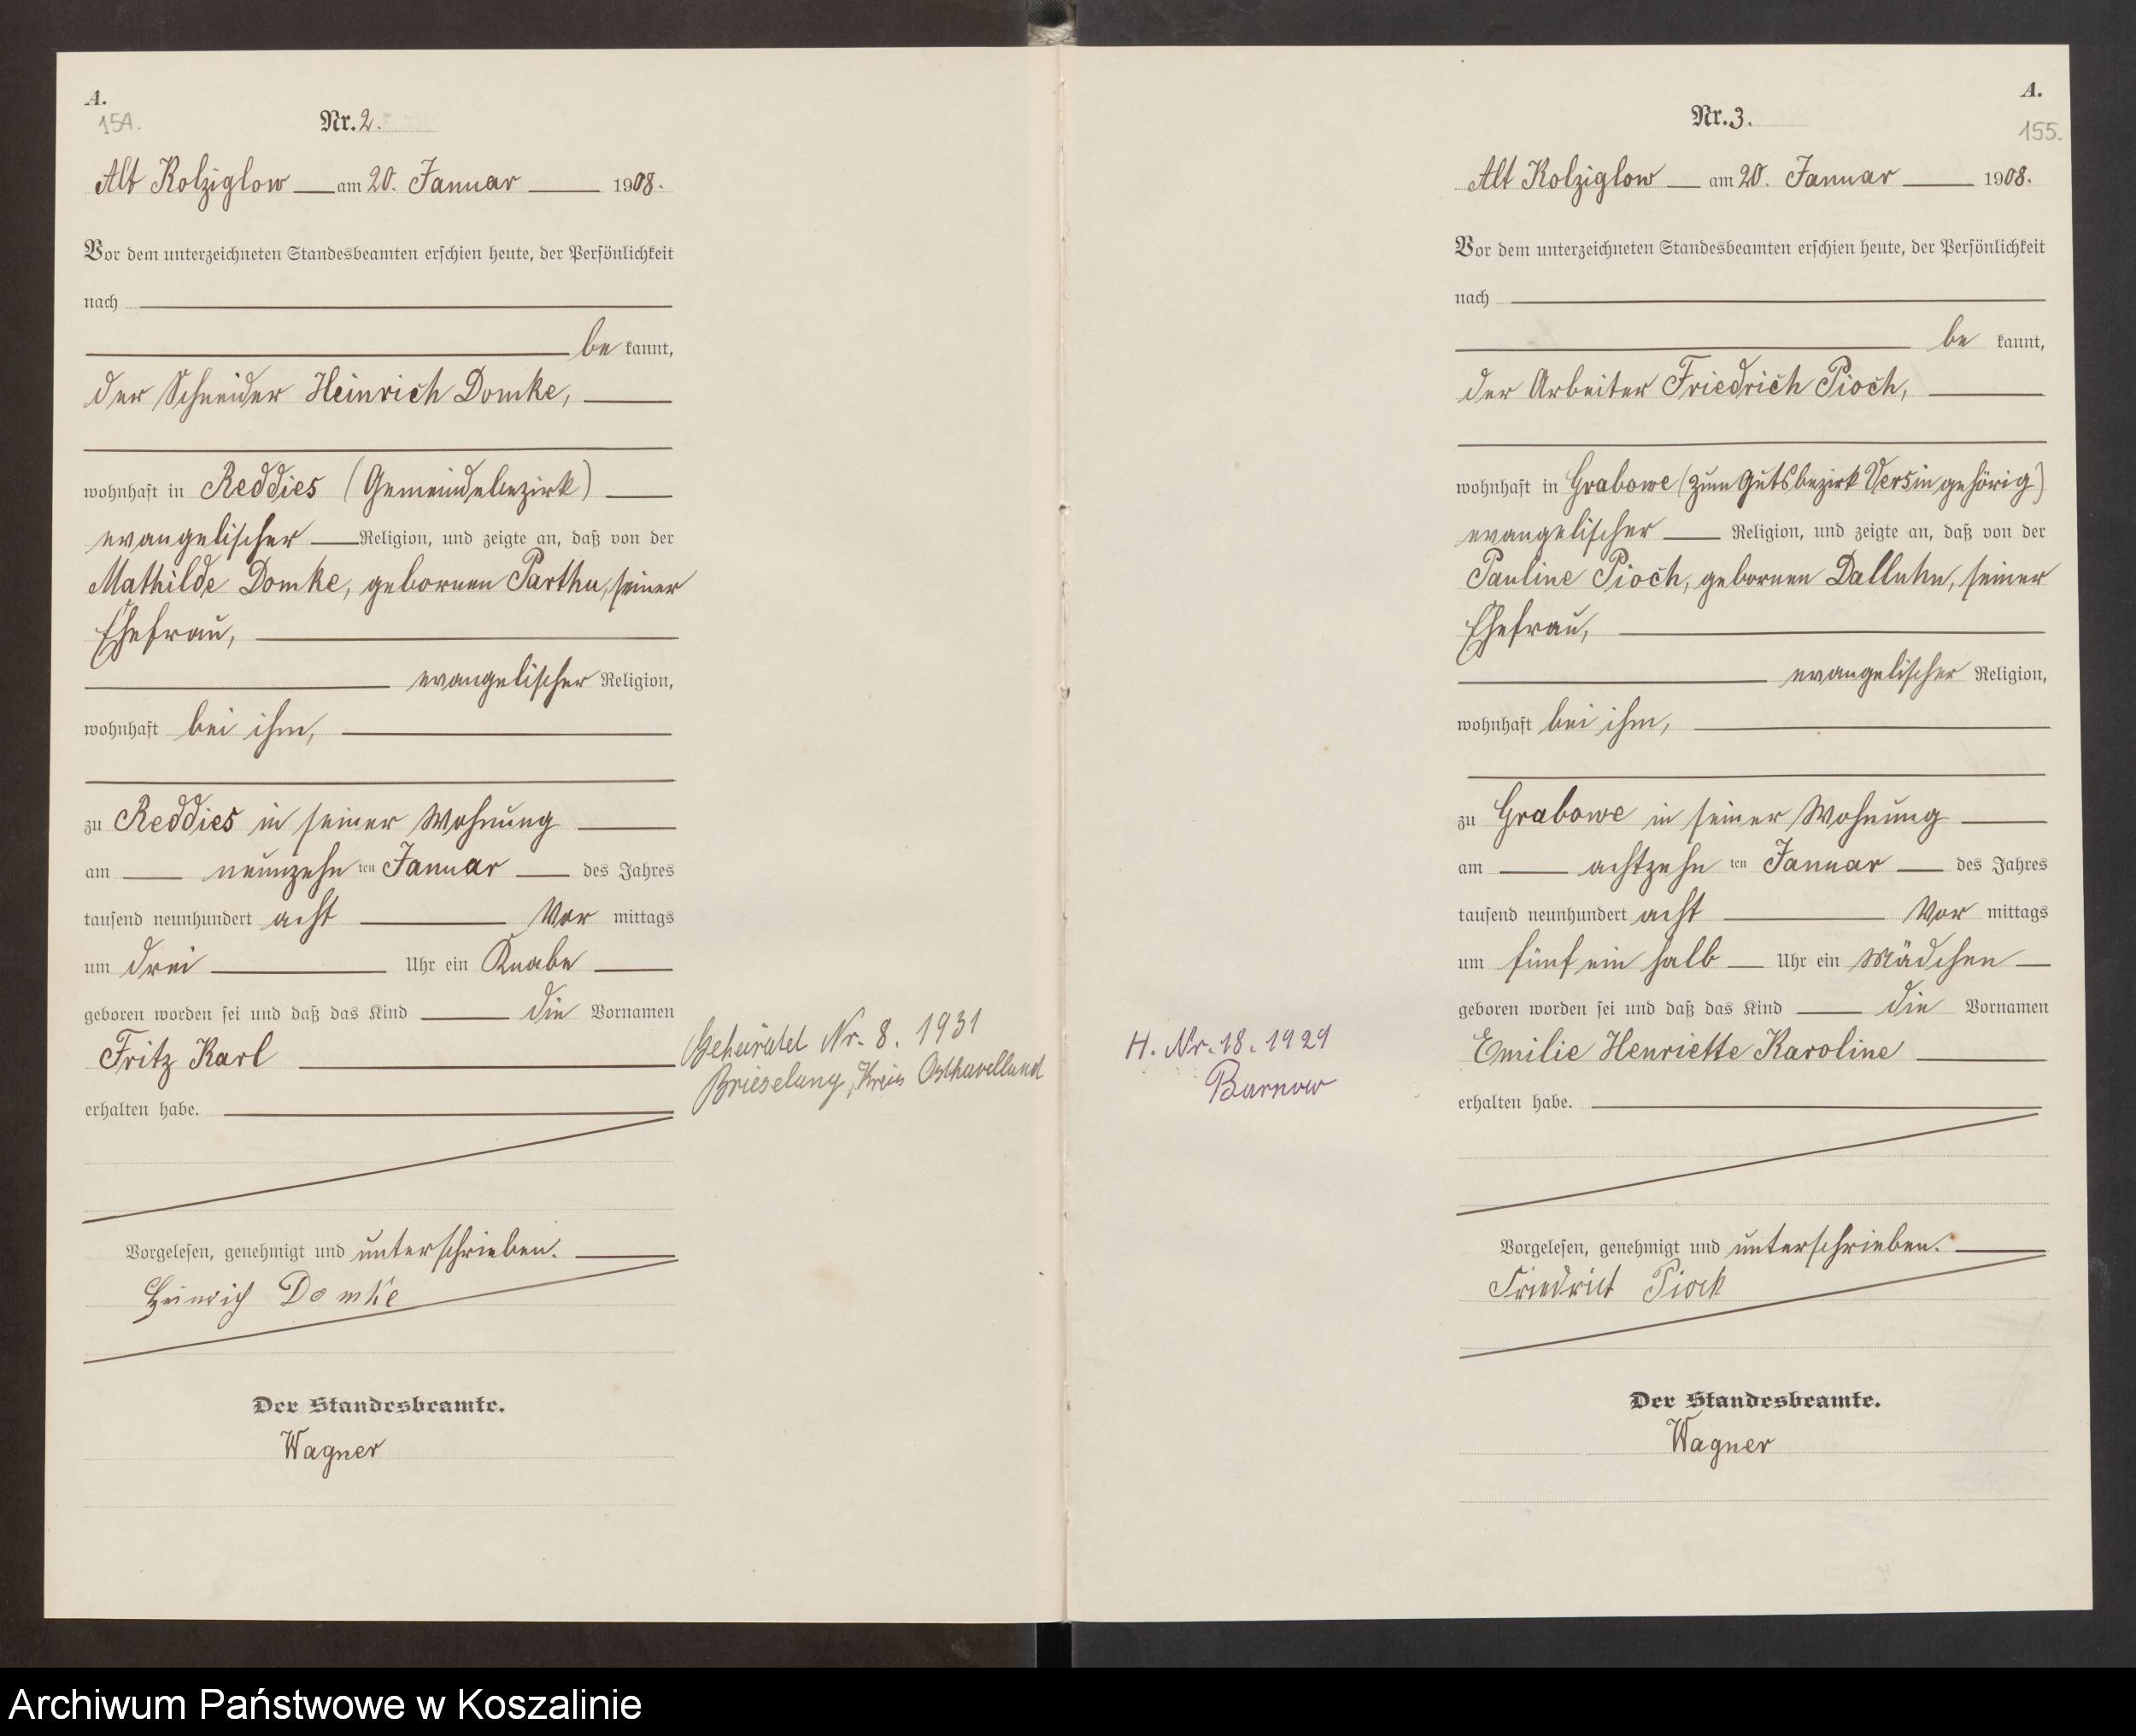 A.
154.
Nr. 2.
Alt Kolziglow am 20. Januar 1908.
Vor dem unterzeichneten Standesbeamten erschien heute, der Persönlichkeit
nach
be kannt,
der Schneider Heinrich Domke,
wohnhaft in Reddies (Gemeindebezirk)
evangelischer Religion, und zeigte an, daß von der
Mathilde Domke, geborenen Parthu, seiner
Ehefrau,
evangelischer Religion,
wohnhaft bei ihm,
zu Reddies in seiner Wohnung
am neunzehn ten Januar des Jahres
tausend neunhundert acht Vor mittags
um drei Uhr ein Knabe
geboren worden sei und daß das Kind die Vornamen
Fritz Karl
erhalten habe.
Vorgelesen, genehmigt und unterschrieben.
Heinrich Domke
Der Standesbeamte.
Wagner
Geheiratet Nr. 8. 1931
Brieselang, Kreis Osthavelland
A.
155.
Nr. 3.
Alt Kolziglow am 20. Januar 1908.
Vor dem unterzeichneten Standesbeamten erschien heute, der Persönlichkeit
nach
be kannt,
der Arbeiter Friedrich Pioch,
wohnhaft in Grabowe (zum Gutsbezirk Versin gehörig)
evangelischer Religion, und zeigte an, daß von der
Pauline Pioch, geborenen Dalluhn, seiner
Ehefrau,
evangelischer Religion,
wohnhaft bei ihm,
zu Grabowe in seiner Wohnung
am achtzehn ten Januar des Jahres
tausend neunhundert acht Vor mittags
um fünf ein halb Uhr ein Mädchen
geboren worden sei und daß das Kind die Vornamen
Emilie Henriette Karoline
erhalten habe.
Vorgelesen, genehmigt und unterschrieben.
Friedrich Pioch
Der Standesbeamte.
Wagner
H. Nr. 18. 1929
Barnow
Archiwum Państwowe w Koszalinie